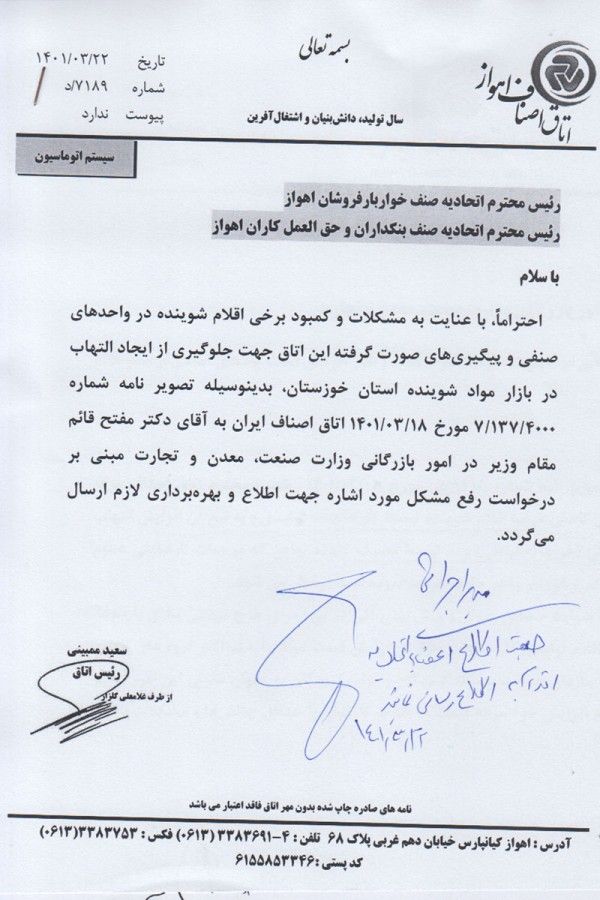 بسمه تعالی
اتاق اصناف اهواز
تاریخ ۱۴۰۱/۰۳/۲۲
شماره ۷۱۸۹/د
پیوست ندارد
سال تولید، دانش‌بنیان و اشتغال‌آفرین
سیستم اتوماسیون
رئیس محترم اتحادیه صنف خواربارفروشان اهواز
رئیس محترم اتحادیه صنف بنکداران و حق العمل کاران اهواز
با سلام
احتراماً، با عنایت به مشکلات و کمبود برخی اقلام شوینده در واحدهای
صنفی و پیگیری‌های صورت گرفته این اتاق جهت جلوگیری از ایجاد التهاب
در بازار مواد شوینده استان خوزستان، بدینوسیله تصویر نامه شماره
۷/۱۳۷/۴۰۰۰ مورخ ۱۴۰۱/۰۳/۱۸ اتاق اصناف ایران به آقای دکتر مفتح قائم
مقام وزیر در امور بازرگانی وزارت صنعت، معدن و تجارت مبنی بر
درخواست رفع مشکل مورد اشاره جهت اطلاع و بهره‌برداری لازم ارسال
می‌گردد.
مدیر اجرائی
جهت اطلاع اعضاء اتحادیه
اطلاع رسانی نمائید
سعید ممبینی
رئیس اتاق
از طرف غلامعلی گلزار
نامه های صادره چاپ شده بدون مهر اتاق فاقد اعتبار می باشد
آدرس : اهواز کیانپارس خیابان دهم غربی پلاک ۶۸ تلفن : ۴-۳۳۸۳۶۹۱ (۰۶۱۳) فکس : ۳۳۸۳۷۵۳(۰۶۱۳)
کد پستی :۶۱۵۵۸۵۳۳۴۶